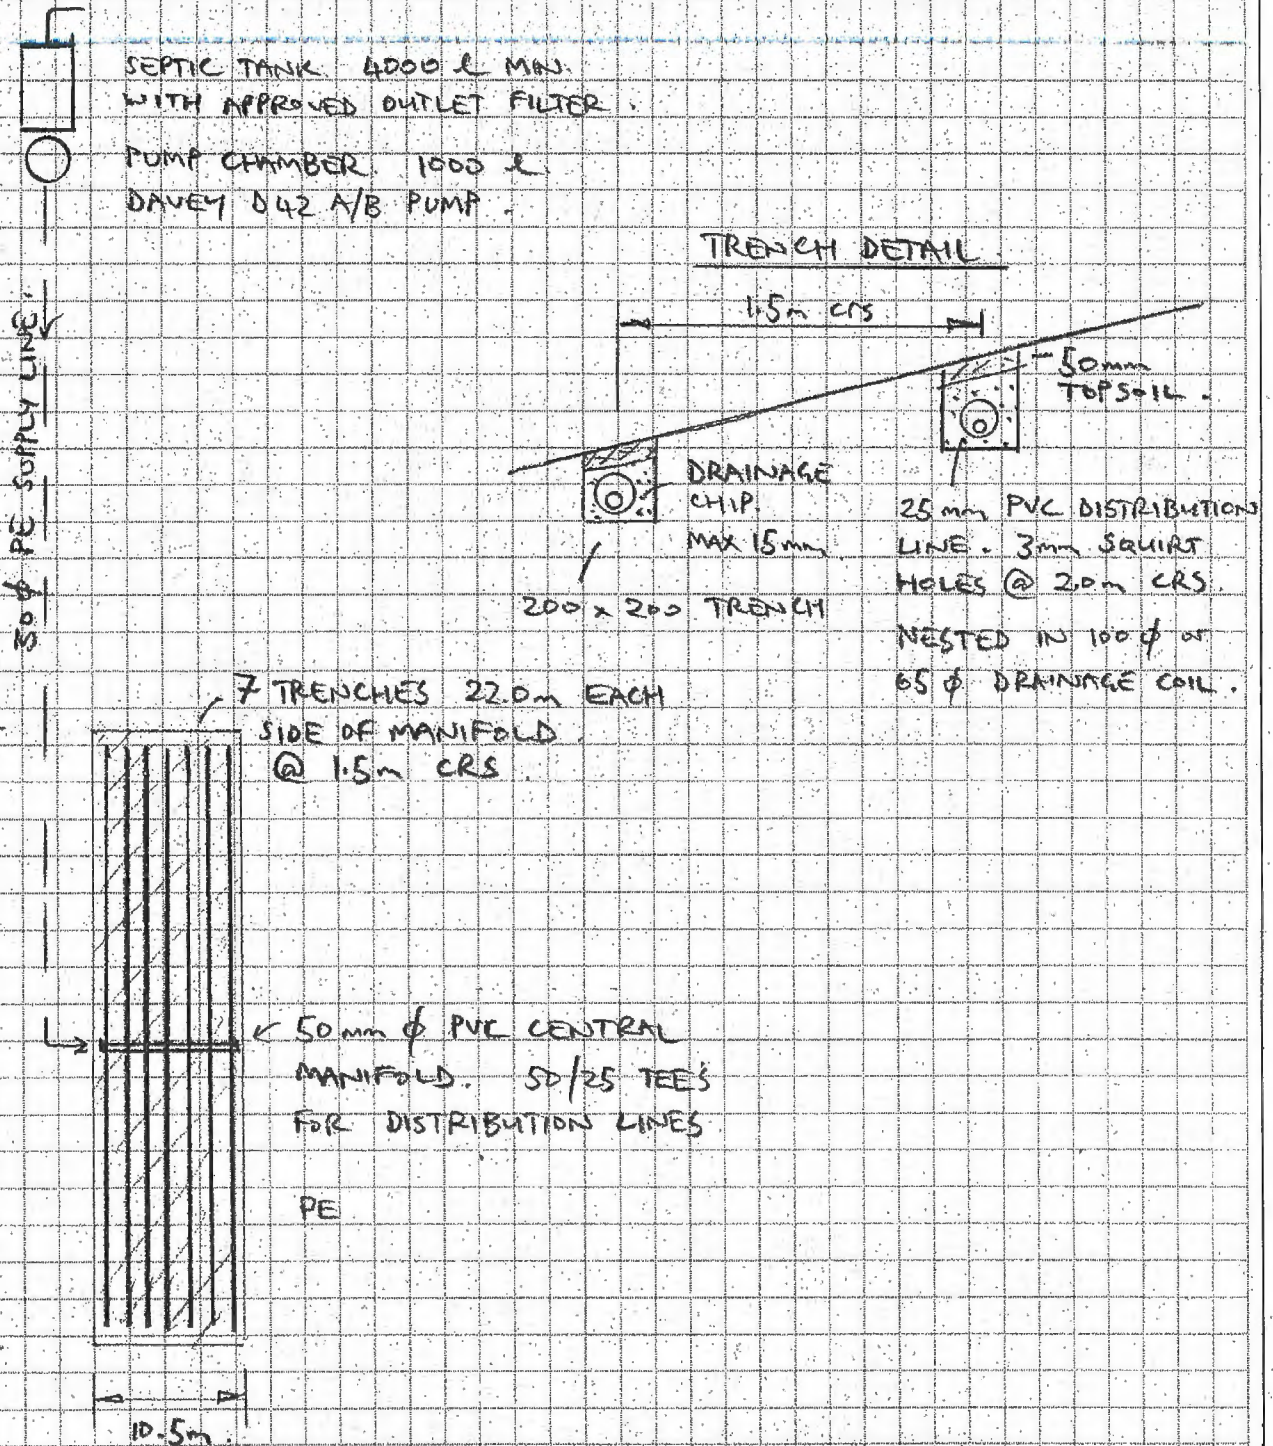 SEPTIC TANK. 4000 l MIN.
WITH APPROVED OUTLET FILTER.
PUMP CHAMBER. 1000 l
DAVEY D42 A/B PUMP.
50 ϕ PE SUPPLY LINE.
TRENCH DETAIL
1.5m crs
50mm
TOPSOIL.
DRAINAGE
CHIP.
MAX 15mm
200 x 200 TRENCH
25 mm PVC DISTRIBUTION
LINE. 3mm SQUIRT
HOLES @ 2.0m CRS.
NESTED IN 100 ϕ or
65 ϕ DRAINAGE COIL.
7 TRENCHES 22.0m EACH
SIDE OF MANIFOLD
@ 1.5m CRS
50 mm ϕ PVC CENTRAL
MANIFOLD. 50/25 TEE'S
FOR DISTRIBUTION LINES
PE
10.5m.